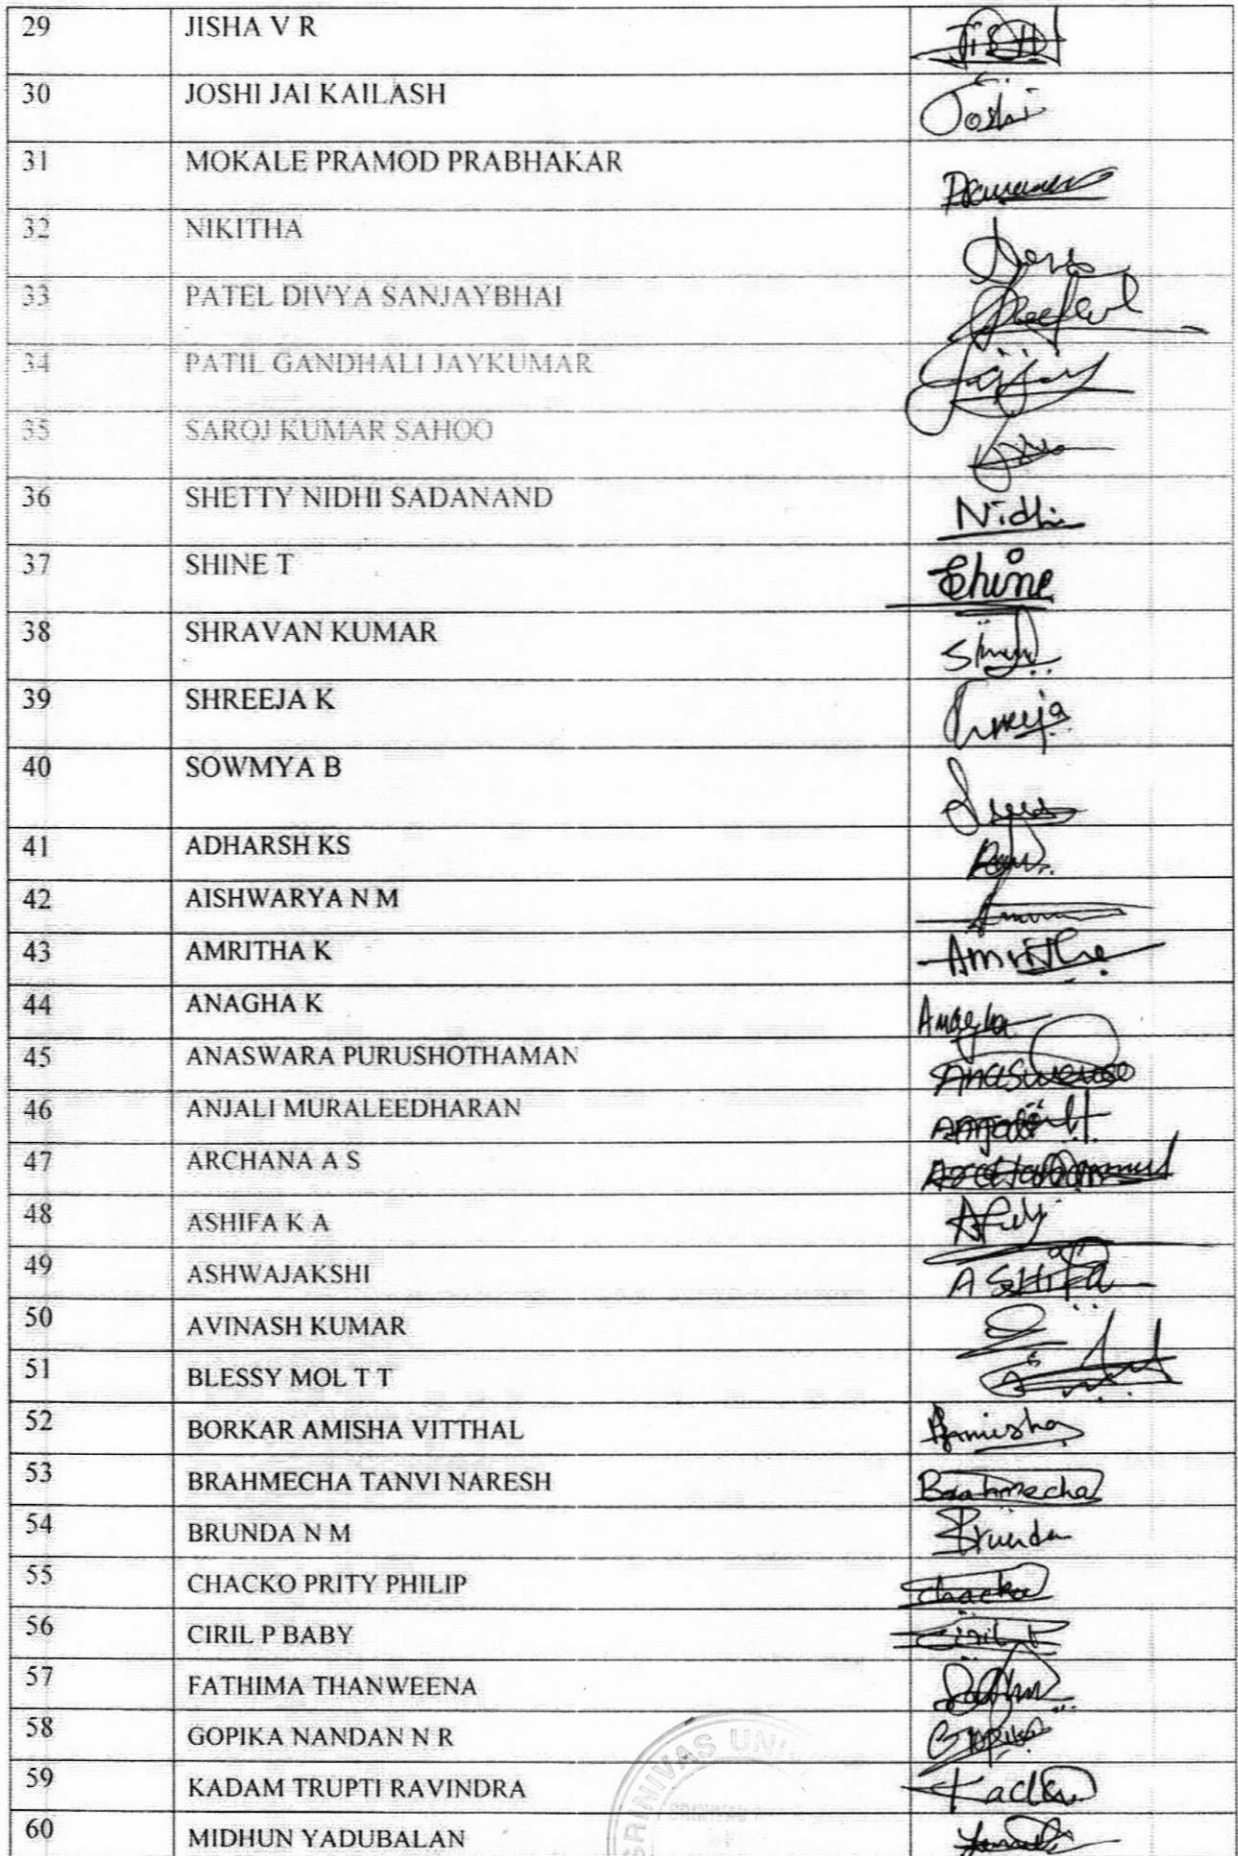 29 JISHA V R JISH
30 JOSHI JAI KAILASH Joshi
31 MOKALE PRAMOD PRABHAKAR
32 NIKITHA
33 PATEL DIVYA SANJAYBHAI
34 PATIL GANDHALI JAYKUMAR
35 SAROJ KUMAR SAHOO
36 SHETTY NIDHI SADANAND Nidhi
37 SHINE T Shine
38 SHRAVAN KUMAR
39 SHREEJA K
40 SOWMYA B
41 ADHARSH KS
42 AISHWARYA N M
43 AMRITHA K Amritha
44 ANAGHA K Anagha
45 ANASWARA PURUSHOTHAMAN
46 ANJALI MURALEEDHARAN
47 ARCHANA A S
48 ASHIFA K A
49 ASHWAJAKSHI ASHIFA
50 AVINASH KUMAR
51 BLESSY MOL T T
52 BORKAR AMISHA VITTHAL Amisha
53 BRAHMECHA TANVI NARESH Brahmecha
54 BRUNDA N M Brunda
55 CHACKO PRITY PHILIP Chacko
56 CIRIL P BABY Ciril P
57 FATHIMA THANWEENA
58 GOPIKA NANDAN N R Gopika
59 KADAM TRUPTI RAVINDRA
60 MIDHUN YADUBALAN
SRINIVAS UNI